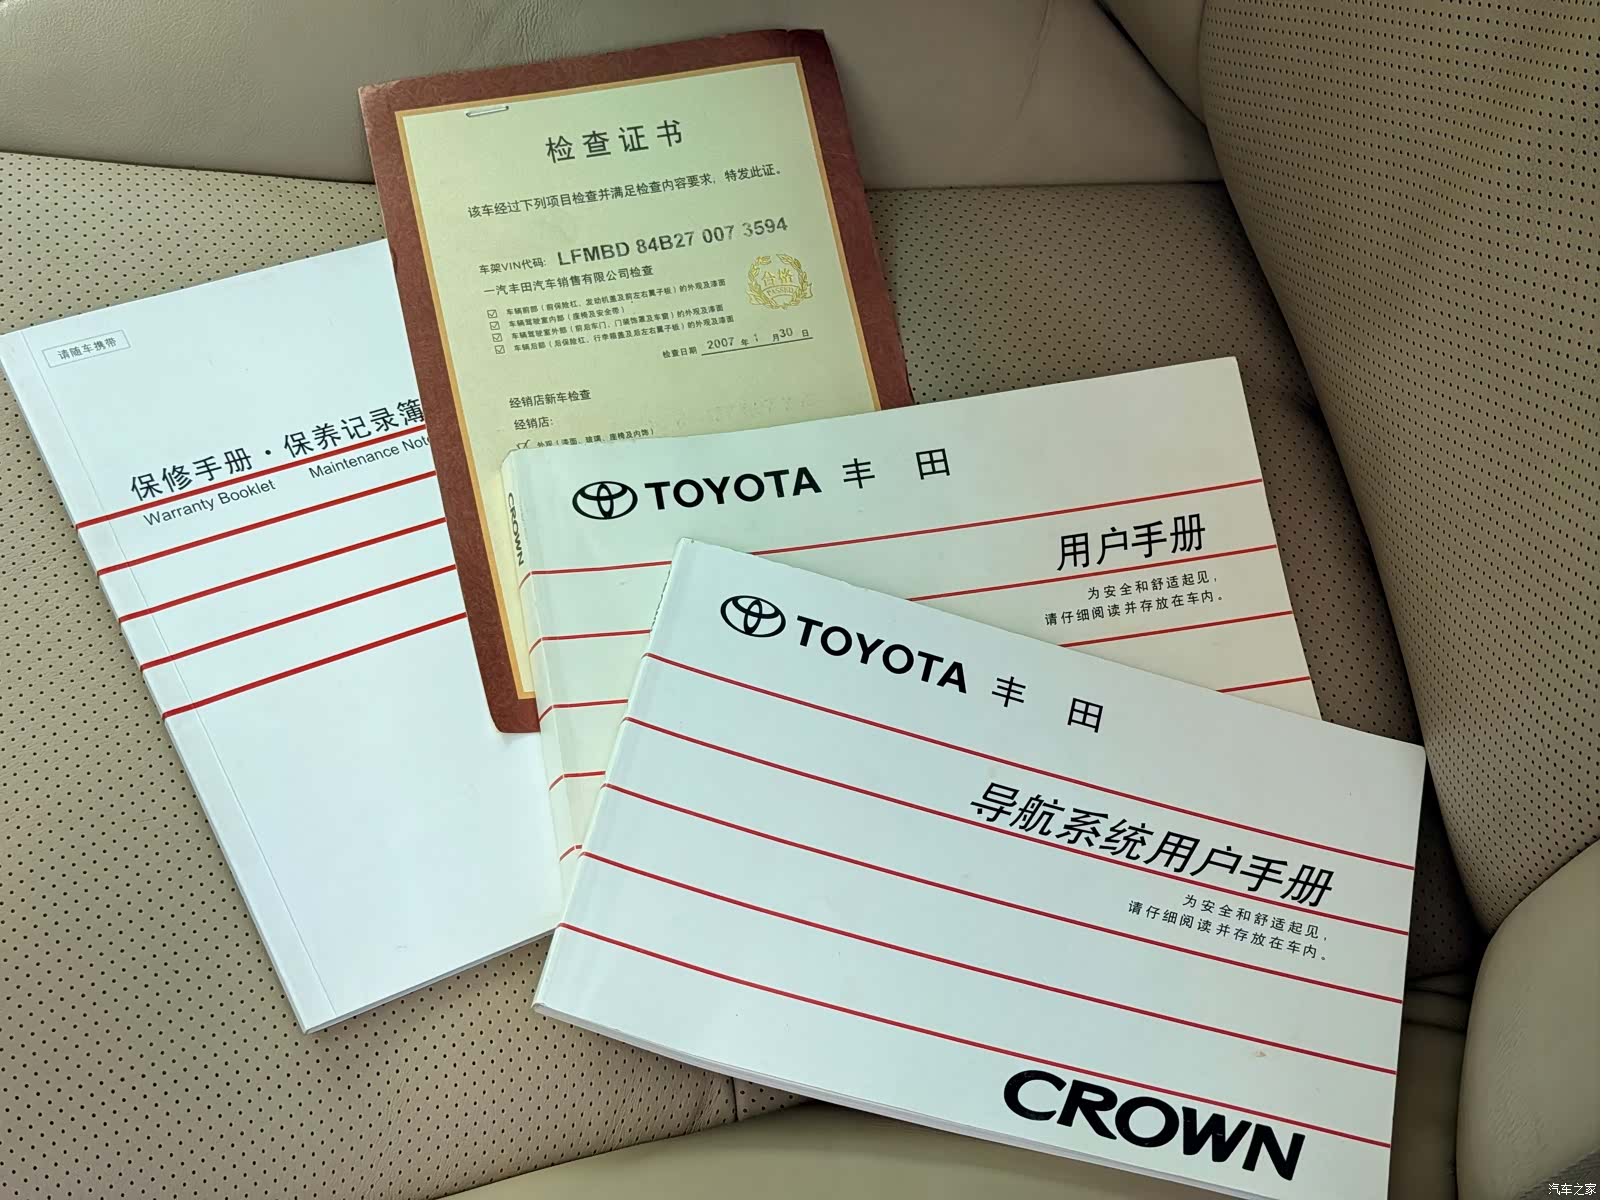 检查证书
该车经过下列项目检查并满足检查内容要求，特发此证。
车架VIN代码: LFMBD 84B27 007 3594
一汽丰田汽车销售有限公司检查
合格
PASSED
☑ 车辆前部（前保险杠、发动机盖及前左右翼子板）的外观及漆面
☑ 车辆驾驶室内部（座椅及安全带）
☑ 车辆驾驶室外部（前后车门、门装饰罩及车窗）的外观及漆面
☑ 车辆后部（后保险杠、行李箱盖及后左右翼子板）的外观及漆面
检查日期 2007 年 1 月 30 日
经销店新车检查
经销店:
外观（漆面、玻璃、座椅及内饰）
请随车携带
保修手册·保养记录簿
Warranty Booklet Maintenance Note
CROWN
TOYOTA 丰 田
用户手册
为安全和舒适起见，
请仔细阅读并存放在车内。
TOYOTA 丰 田
导航系统用户手册
为安全和舒适起见，
请仔细阅读并存放在车内。
CROWN
汽车之家